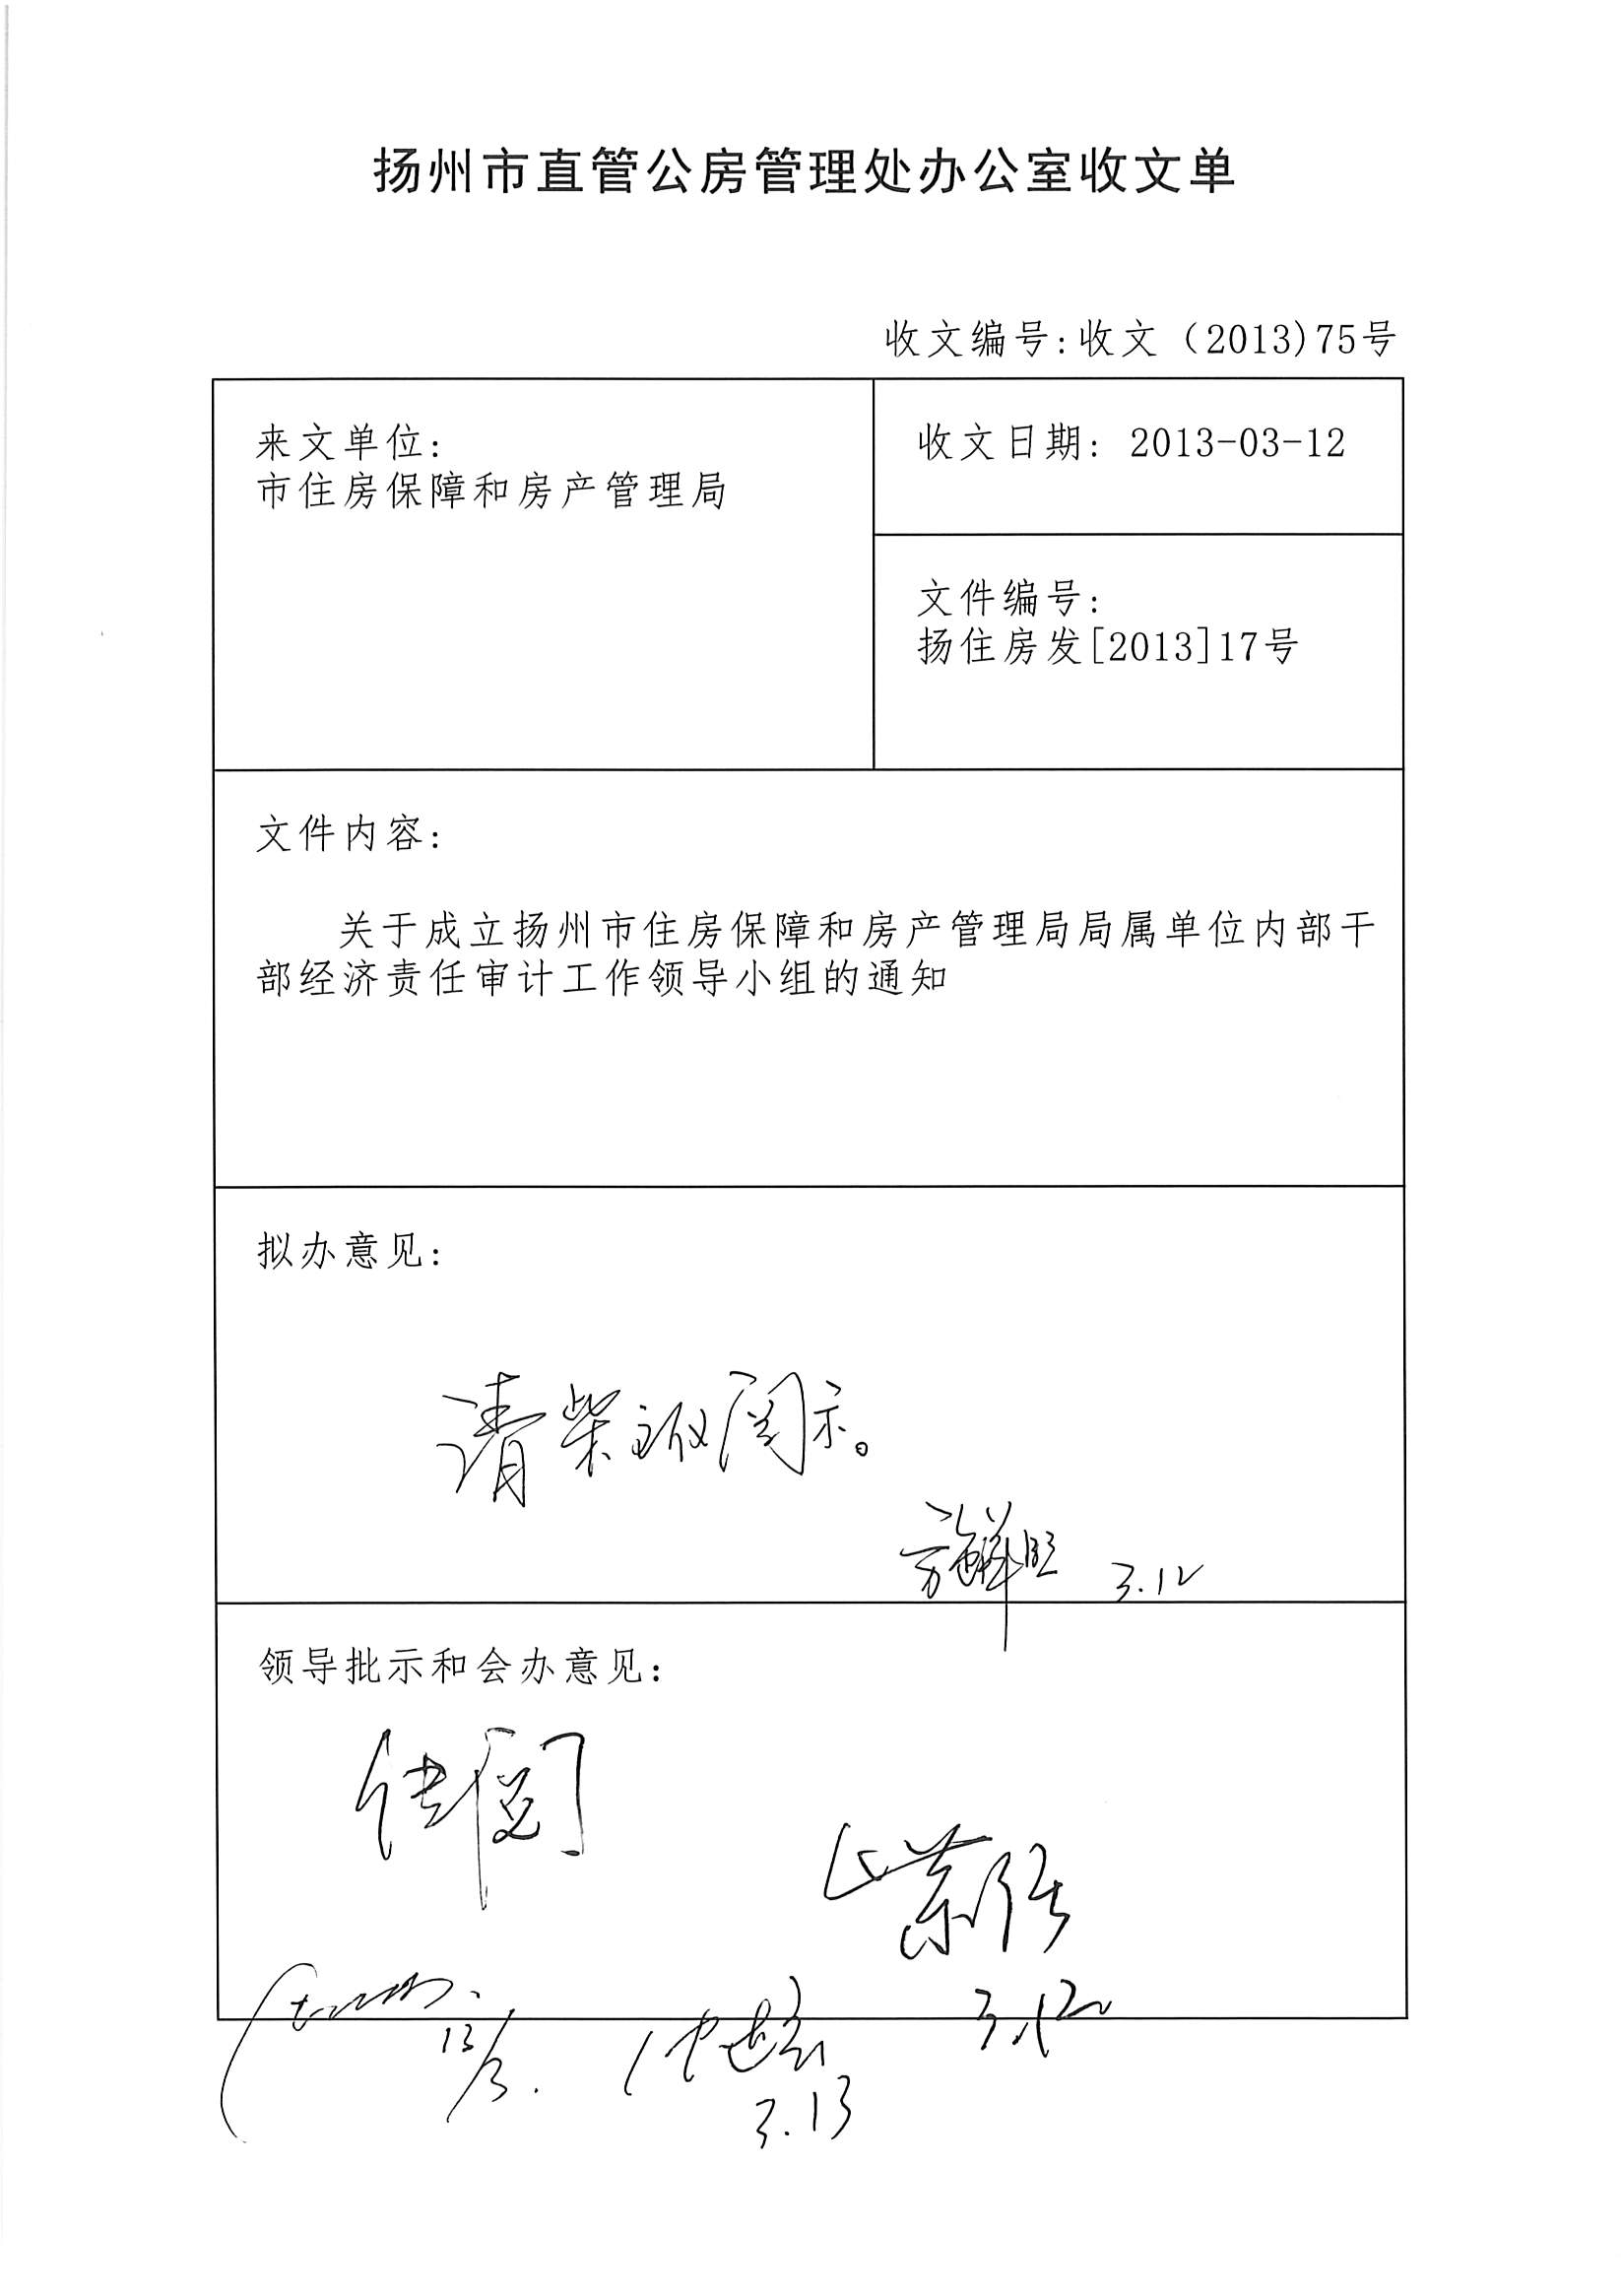 扬州市直管公房管理处办公室收文单
收文编号:收文（2013)75号
来文单位:
市住房保障和房产管理局
收文日期: 2013-03-12
文件编号:
扬住房发[2013]17号
文件内容:
关于成立扬州市住房保障和房产管理局局属单位内部干
部经济责任审计工作领导小组的通知
拟办意见:
请柴主任阅示。
3.12
领导批示和会办意见:
传阅
3.12
13/3.
3.13